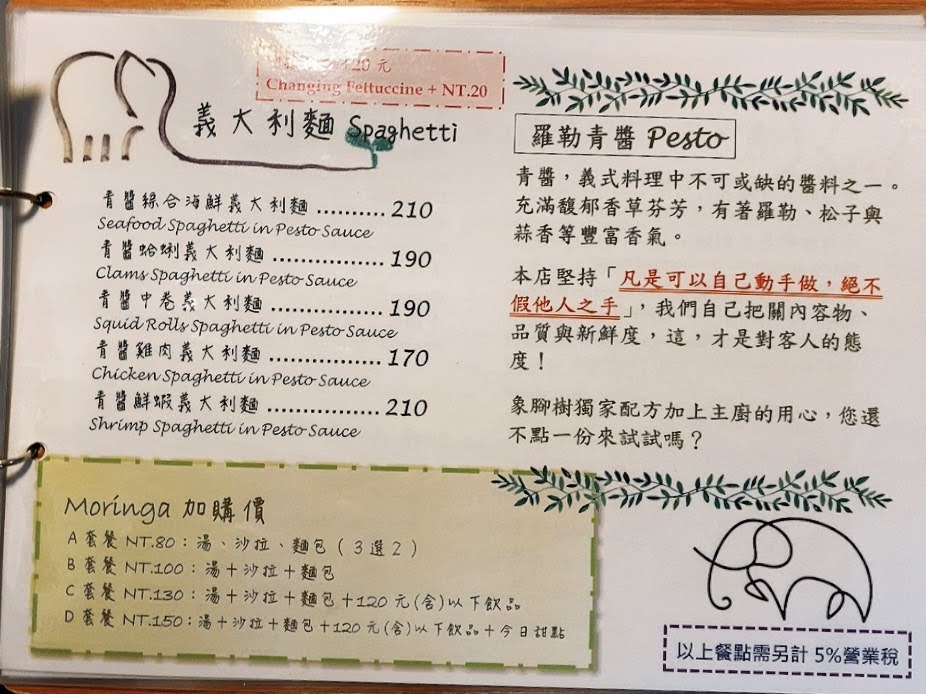 20 元
Changing Fettuccine + NT.20
義大利麵 Spaghetti
青醬綜合海鮮義大利麵 .......... 210
Seafood Spaghetti in Pesto Sauce
青醬蛤蜊義大利麵 ................. 190
Clams Spaghetti in Pesto Sauce
青醬中卷義大利麵 ................. 190
Squid Rolls Spaghetti in Pesto Sauce
青醬雞肉義大利麵 ................. 170
Chicken Spaghetti in Pesto Sauce
青醬鮮蝦義大利麵 ................. 210
Shrimp Spaghetti in Pesto Sauce
羅勒青醬 Pesto
青醬，義式料理中不可或缺的醬料之一。
充滿馥郁香草芬芳，有著羅勒、松子與
蒜香等豐富香氣。
本店堅持「凡是可以自己動手做，絕不
假他人之手」，我們自己把關內容物、
品質與新鮮度，這，才是對客人的態
度！
象腳樹獨家配方加上主廚的用心，您還
不點一份來試試嗎？
Moringa 加購價
A 套餐 NT.80：湯、沙拉、麵包（3選2）
B 套餐 NT.100：湯＋沙拉＋麵包
C 套餐 NT.130：湯＋沙拉＋麵包＋120 元(含)以下飲品
D 套餐 NT.150：湯＋沙拉＋麵包＋120 元(含)以下飲品＋今日甜點
以上餐點需另計 5%營業稅